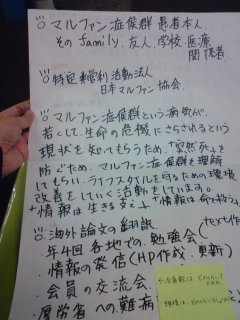 マルファン症候群患者本人、
その family、友人、学校、医療
関係者
特定非営利活動法人
日本マルファン協会。
マルファン症候群という病気が、
若くして、生命の危機にさらされるという
現状を知ってもらうため、"突然死"を
防ぐため、マルファン症候群を理解
してもらい、ライフスタイルを守るための環境
改善をしていく活動をしています。
情報は生きる支え
情報は命を救う
・海外論文の翻訳
・年4回 各地での勉強会
・情報の発信(HP作成、更新)
・会員の交流会
・厚労省への難病